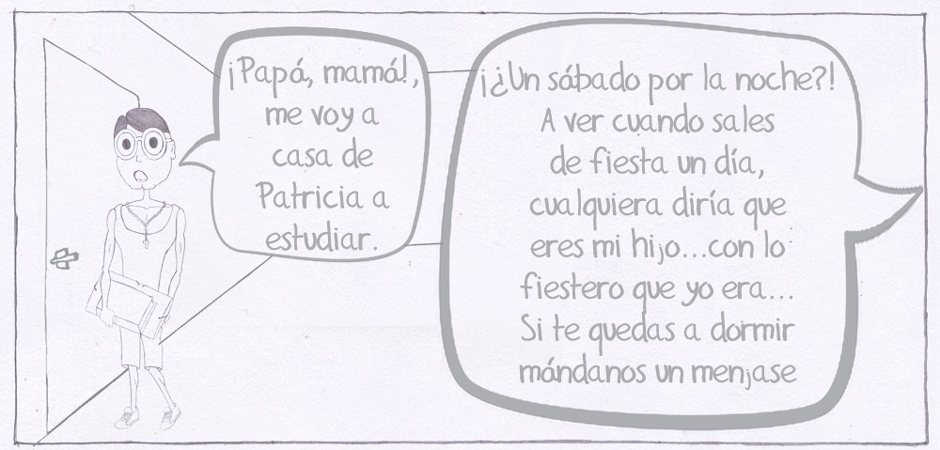 ¡Papá, mamá!,
me voy a
casa de
Patricia a
estudiar.
¡¿Un sábado por la noche?!
A ver cuando sales
de fiesta un día,
cualquiera diría que
eres mi hijo...con lo
fiestero que yo era...
Si te quedas a dormir
mándanos un menjase